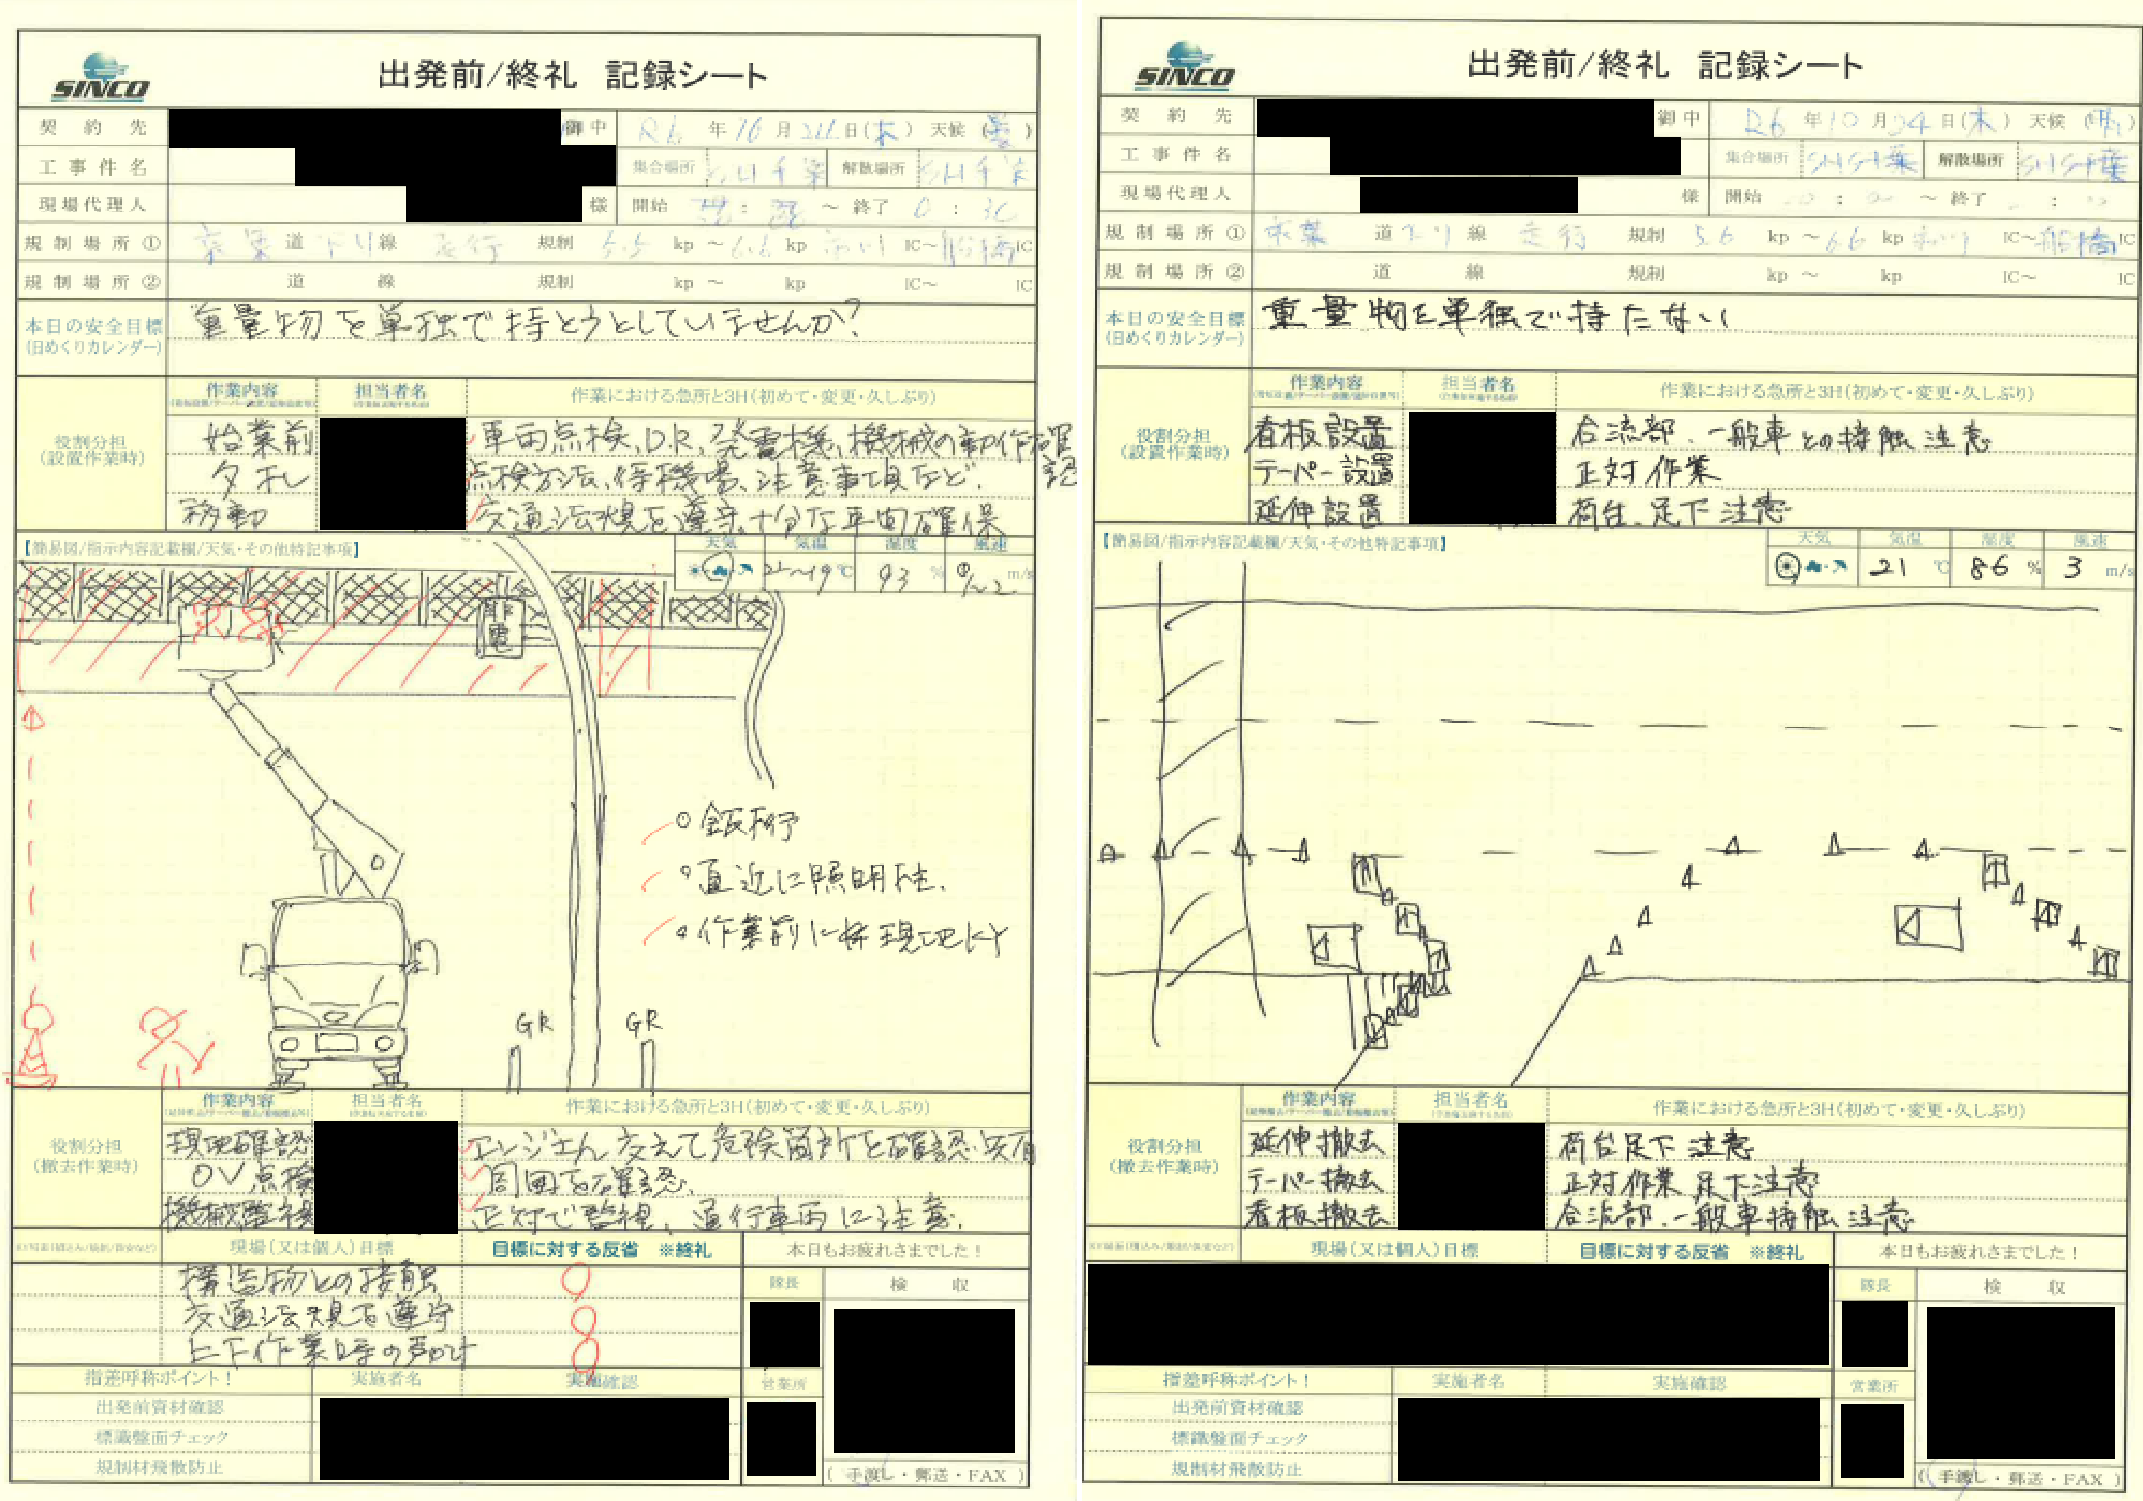 SINCO
出発前/終礼 記録シート
契約先 御中 R6年10月24日(木) 天候(曇)
工事件名 集合場所 SH千葉 解散場所 SH千葉
現場代理人 様 開始 : ～ 終了 0 : 30
規制場所① 京葉道 下り線 走行 規制 5.5 kp ～ 6.6 kp IC～船橋IC
規制場所② 道 線 規制 kp ～ kp IC～ IC
本日の安全目標 重量物を単独で持とうとしていませんか?
(日めくりカレンダー)
作業内容 担当者名 作業における急所と3H(初めて・変更・久しぶり)
役割分担
(設置作業時)
始業前 車両点検、D.R、発電機、機械の動作確認
夕礼 点検方法、待機場、注意事項など。
移動 交通法規を遵守、十分な車間確保
【簡易図/指示内容記載欄/天気・その他特記事項】
天気 気温 湿度 風速
21～19℃ 93% 1～2 m/s
○鈑桁
○直近に照明柱、
○作業前に再現地KY
GR GR
作業内容 担当者名 作業における急所と3H(初めて・変更・久しぶり)
役割分担
(撤去作業時)
現地確認 エンジさん交えて危険箇所を確認共有
OV点検 周囲を確認、
機械監視 正対で監視、通行車両に注意、
現場(又は個人)目標 目標に対する反省 ※終礼 本日もお疲れさまでした!
構造物との接触
交通法規を遵守
上下作業時の声かけ
隊長 検収
指差呼称ポイント! 実施者名 実施確認 営業所
出発前資材確認
標識盤面チェック
規制材飛散防止
(手渡し・郵送・FAX)
SINCO
出発前/終礼 記録シート
契約先 御中 R6年10月24日(木) 天候(晴)
工事件名 集合場所 SH千葉 解散場所 SH千葉
現場代理人 様 開始 : ～ 終了 :
規制場所① 京葉道 下り線 走行 規制 5.6 kp ～ 6.6 kp IC～船橋IC
規制場所② 道 線 規制 kp ～ kp IC～ IC
本日の安全目標 重量物を単独で持たない
(日めくりカレンダー)
作業内容 担当者名 作業における急所と3H(初めて・変更・久しぶり)
役割分担
(設置作業時)
看板設置 合流部、一般車との接触注意
テーパー設置 正対作業
延伸設置 荷台、足下注意
【簡易図/指示内容記載欄/天気・その他特記事項】
天気 気温 湿度 風速
21℃ 86% 3 m/s
作業内容 担当者名 作業における急所と3H(初めて・変更・久しぶり)
役割分担
(撤去作業時)
延伸撤去 荷台足下注意
テーパー撤去 正対作業 足下注意
看板撤去 合流部、一般車接触注意
現場(又は個人)目標 目標に対する反省 ※終礼 本日もお疲れさまでした!
隊長 検収
指差呼称ポイント! 実施者名 実施確認 営業所
出発前資材確認
標識盤面チェック
規制材飛散防止
(手渡し・郵送・FAX)